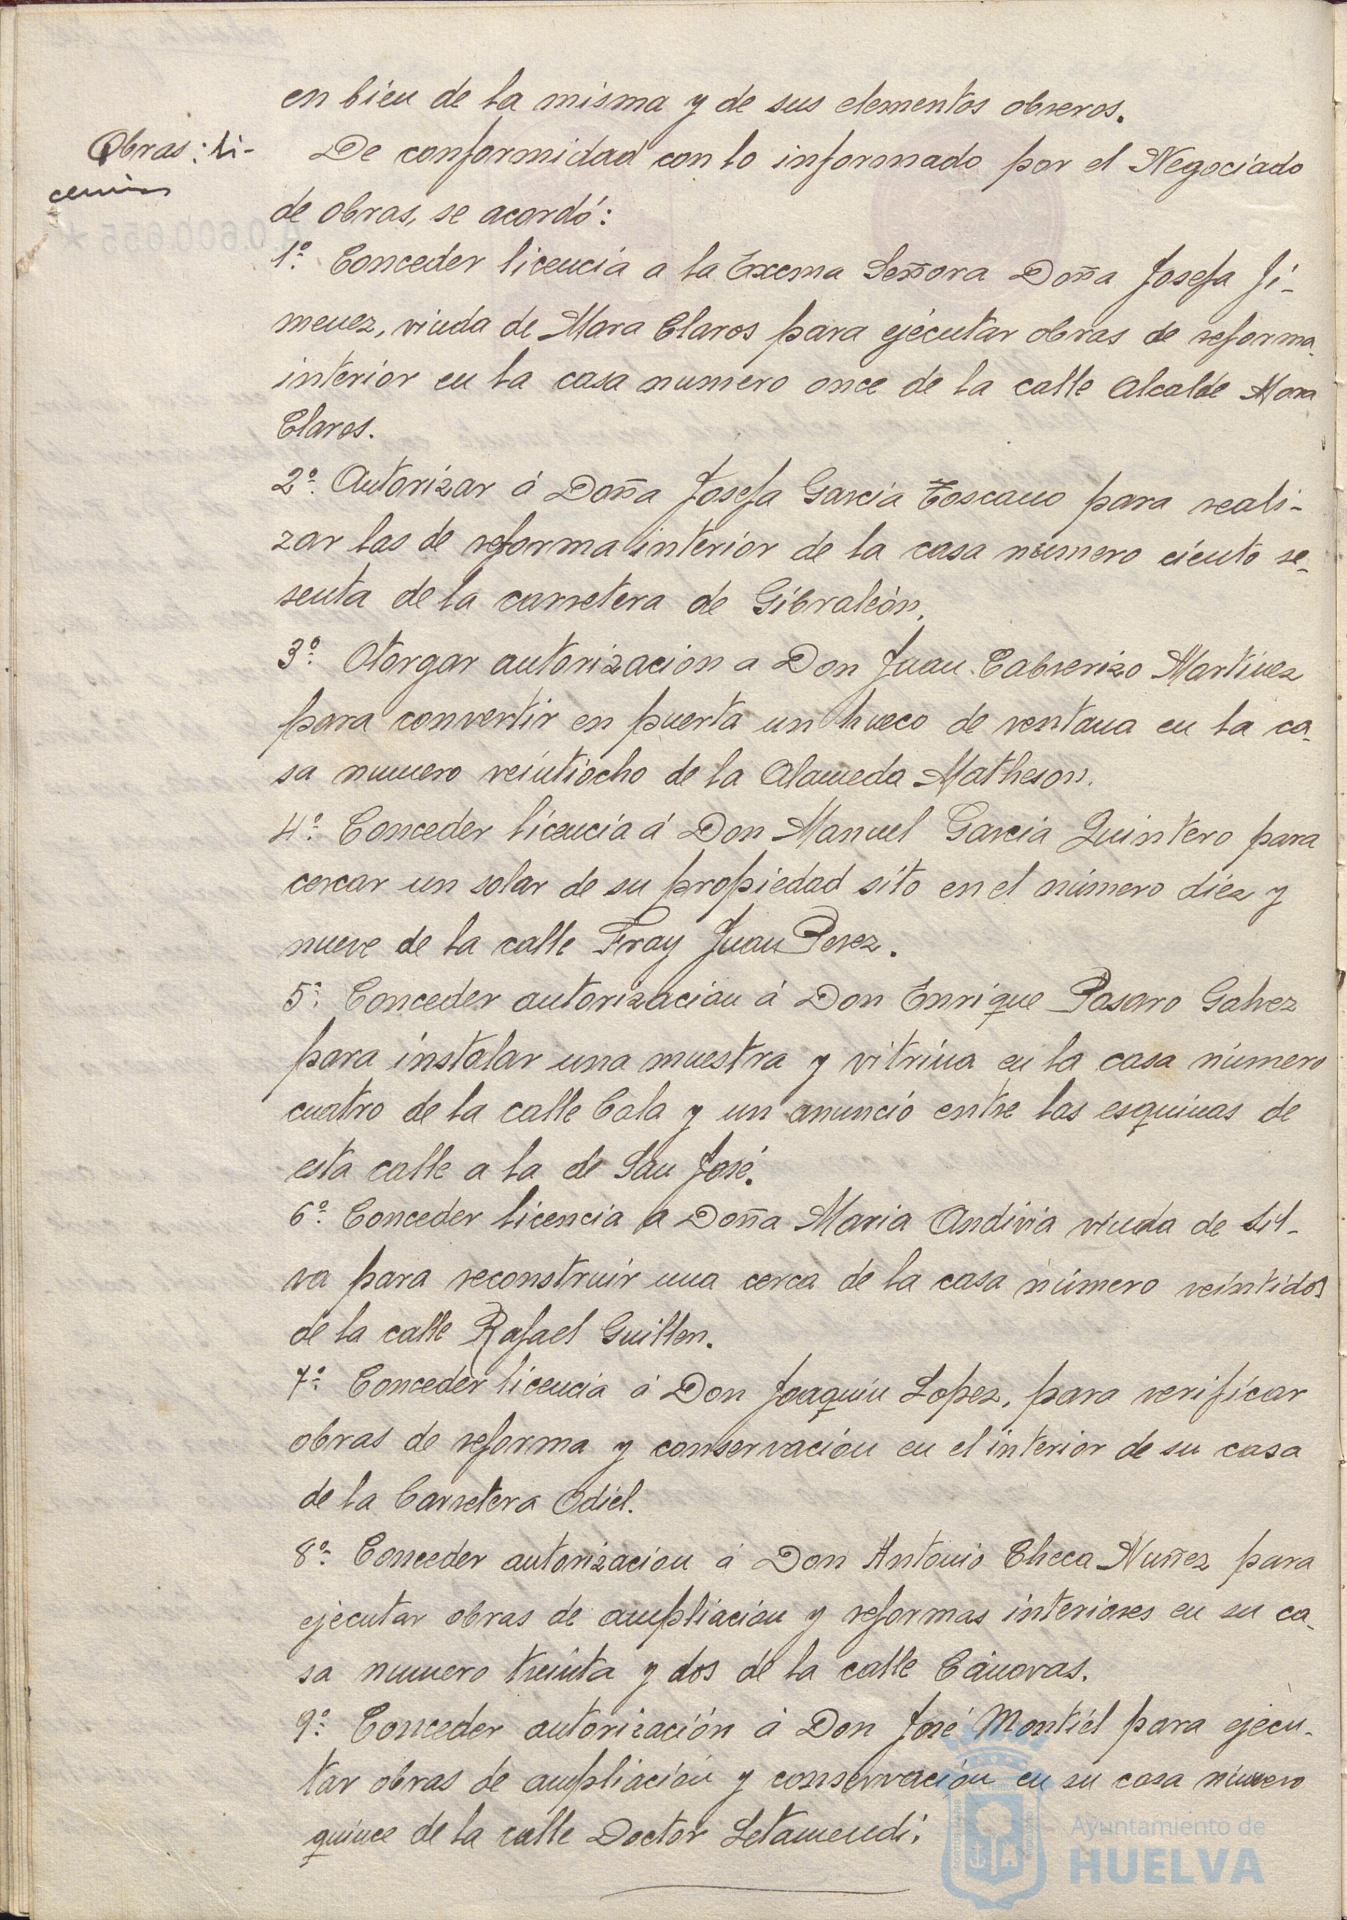 en bien de la misma y de sus elementos obreros.
Obras: li-
cencias
De conformidad con lo informado por el Negociado
de obras, se acordó:
1º. Conceder licencia a la Excma Señora Doña Josefa Ji-
menez, viuda de Mora Claros para ejecutar obras de reforma
interior en la casa numero once de la calle Alcalde Mora
Claros.
2º. Autorizar á Doña Josefa Garcia Toscano para reali-
zar las de reforma interior de la casa número ciento se-
senta de la carretera de Gibraleón.
3º. Otorgar autorización a Don Juan Cabrerizo Martinez
para convertir en puerta un hueco de ventana en la ca-
sa numero veintiocho de la Alameda Matheson.
4º. Conceder licencia á Don Manuel Garcia Quintero para
cercar un solar de su propiedad sito en el número diez y
nueve de la calle Fray Juan Perez.
5º. Conceder autorizacion á Don Enrique Pasaro Galvez
para instalar una muestra y vitrina en la casa número
cuatro de la calle Cala y un anuncio entre las esquinas de
esta calle a la de San José.
6º. Conceder licencia a Doña Maria Andivia viuda de Sil-
va para reconstruir una cerca de la casa número veintidos
de la calle Rafael Guillen.
7º. Conceder licencia á Don Joaquin Lopez, para verificar
obras de reforma y conservación en el interior de su casa
de la Carretera Odiel.
8º. Conceder autorizacion á Don Antonio Checa Nuñez para
ejecutar obras de ampliación y reformas interiores en su ca-
sa numero treinta y dos de la calle Cánovas.
9º. Conceder autorización á Don José Montiel para ejecu-
tar obras de ampliación y conservación en su casa número
quince de la calle Doctor Letamendi.
Ayuntamiento de
HUELVA